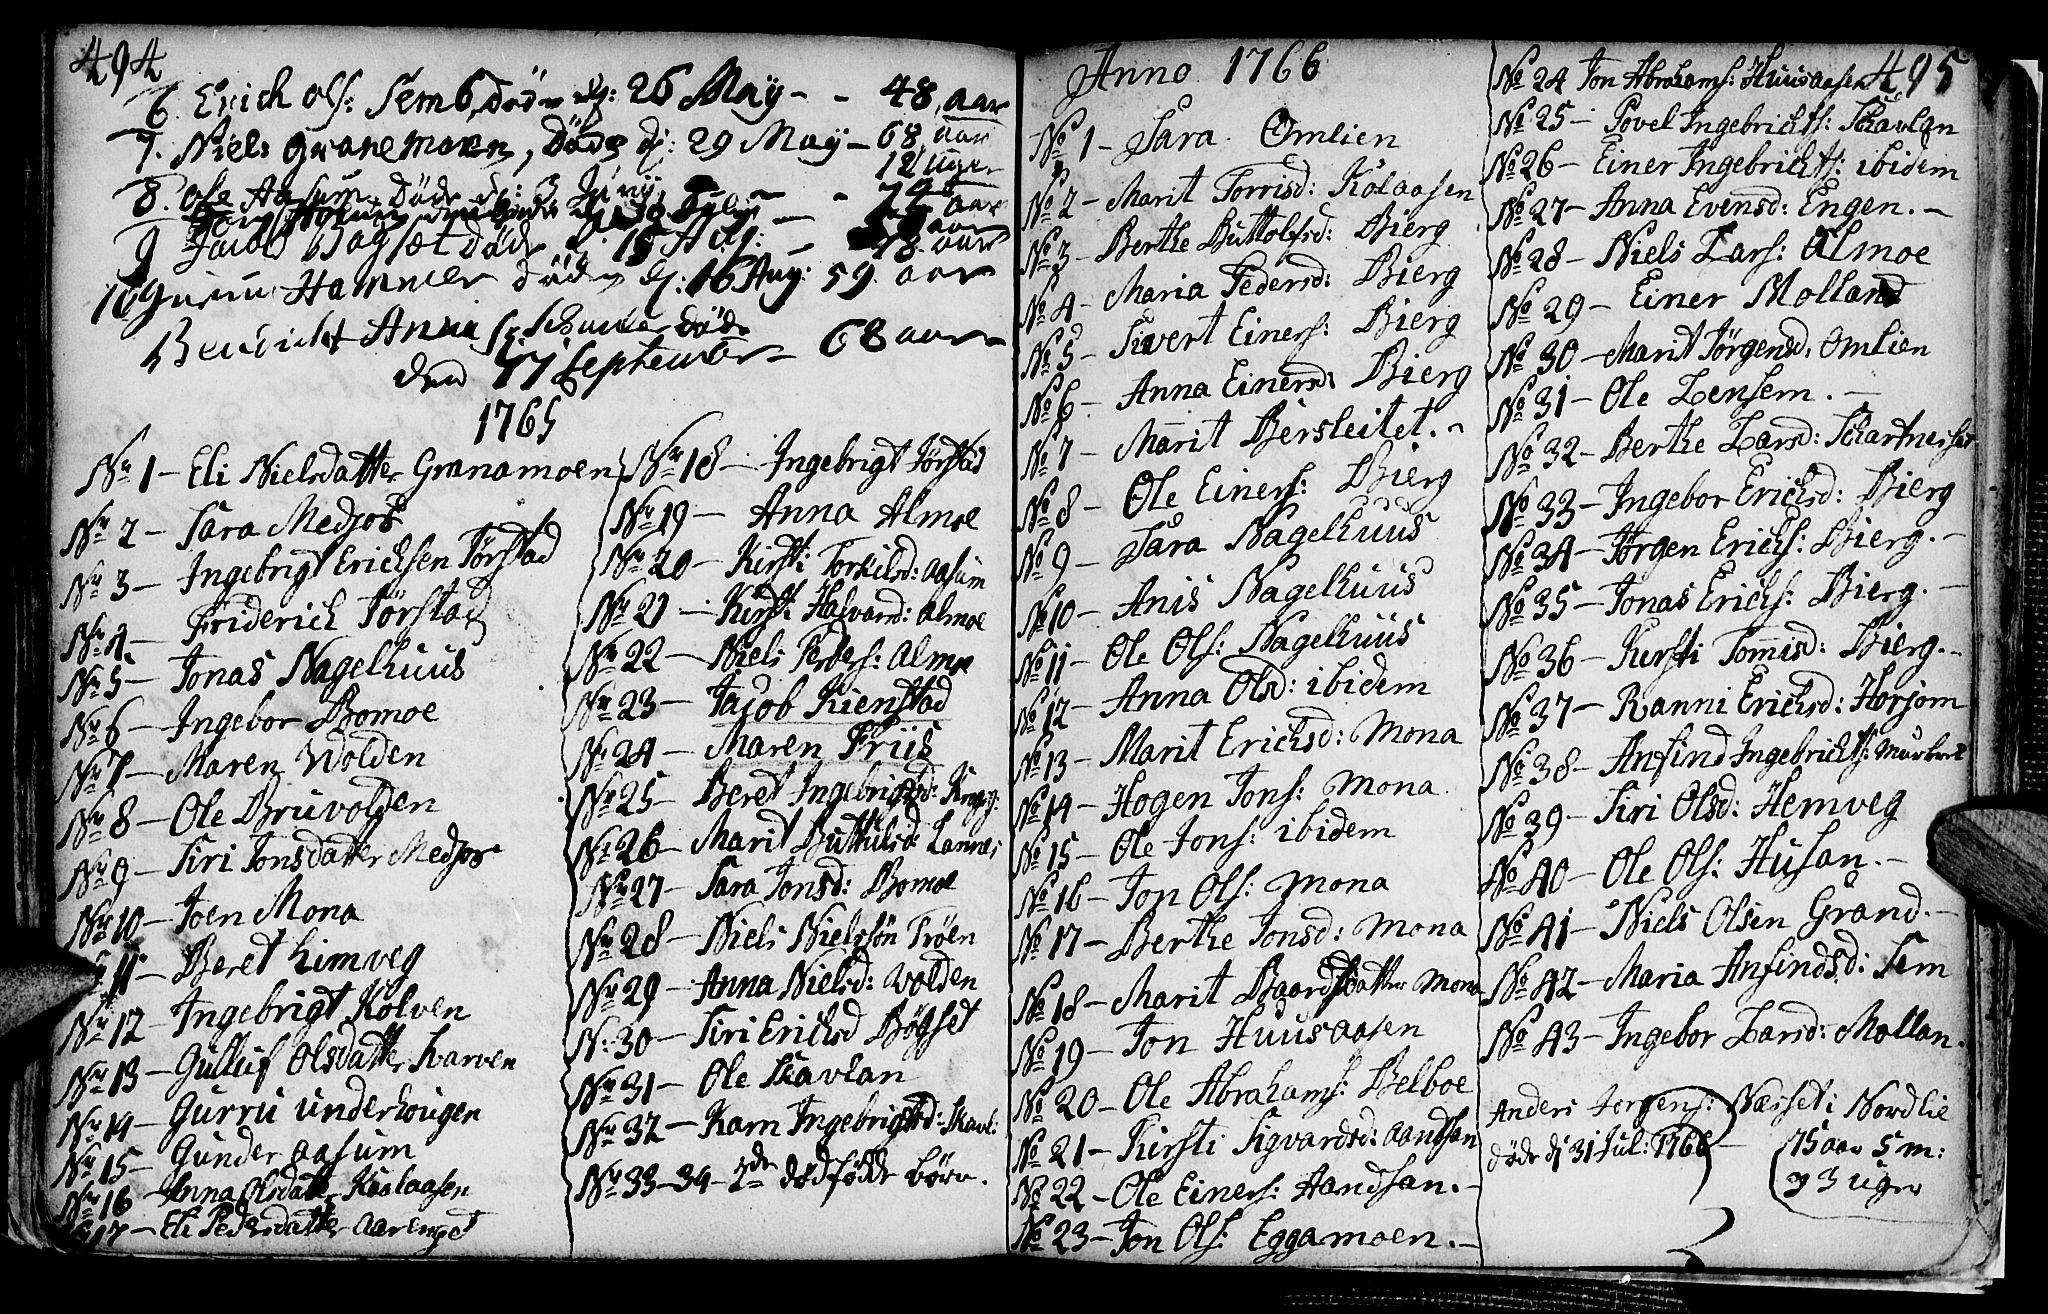 494
6. Erich Ols: Semb, døde dj: 26 May - - 48, aar
7. Niels Granemoen, Døde dj: 29 May - 68 aar
12 uger
8. Ole Aasum Døde dj: 3 Junij - - 74 aar
9 Jacob Bagset Døde d. 15 Aug: - 48. aar
10 Gurru Hammer døde dj: 16 Aug: 59 aar
Bendicht Anna Sl. Døde 68 aar
den 17 September
1765
Nr 1 - Eli Nielsdatter Granamoen
Nr 2 - Sara Medjos
Nr 3 - Ingebrigt ErichsenFørstad
Nr 4 - Friderich Førstad
Nr 5 - Jonas Nagelhuus
Nr 6 - Ingebor Bomoe
Nr 7 - Maren Wolden
Nr 8 - Ole Bruvolden
Nr 9 - Siri Jonsdatter Medjos
Nr 10 - Joen Mona
11 - Beret Himveg
Nr 12 - Ingebrigt Kolven
Nr 13 - Gulluf Olsdatter Harven
Nr 14 - Gurru underhougen
Nr 15 - Gunder aasum
Nr 16 - Anna Olsdatter Kaalaasen
17 - Eli Pedersdatter aarenget
Nr 18 - Ingebrigt Førstad
Nr 19 - Anna Almoe
Nr 20 - Kirsti Torkilsd: aasum
Nr 21 - Kirsti Halvord: almoe
Nr 22 - Niels Peders: almoe
Nr 23 - Jacob Kienstad
Nr 24 - Maren Friis
Nr 25 - Beret Ingebrigtsd:
Nr 26 - Marit Buttulsd:
Nr 27 - Sara Jonsd: Bomoe
Nr 28 - Niels Nielssøn Trøen
Nr 29 - Anna Nielsd: Wolden
N: 30 - Siri Ericksd Bøgset
Nr 31 - Ole Skavlan
Nr 32 - Karn Ingebrigtsd: Skavl:
Nr 33-34 - 2de dødfødde børn.
Anno 1766
No 1 - Sara Omlien
No 2 - Marit Torrisd: Kolaasen
No 3 - Berthe Buttolfsd: Bierg
No 4 - Maria Pedersd: Bierg
No 5 - Sivert Einers: Bierg
No 6 - Anna Einersd: Bierg
No 7 - Marit Bersleitet. -
No 8 - Ole Einers: Bierg
No 9 - Sara Nagelhuus
No 10 - Anis Nagelhuus
No 11 - Ole Ols: Nagelhuus
No 12 - Anna Olsd: ibidem
No 13 - Marit Ericksd: Mona
No 14 - Hogen Jons: Mona.
No 15 - Ole Jons: ibidem
No 16 - Jon Ols: Mona
No 17 - Berthe Jonsd: Mona
No 18 - Marit Baardsdatter Mona
No 19 - Jon Huusaasen
No 20 - Ole Abrahams: Belboe
No 21 - Kirsti Sigvardsd: aandsan
No 22 - Ole Einers: Aandsan. -
No 23 - Jon Ols: Eggamoen. -
495
No 24 Jon Abrahams: Huusaasen
No 25 - Povel Ingebrichts: Skavlan
No 26 - Einer Ingebrichts: ibidem
No 27 - Anna Evensd: Engen. -
No 28 - Niels Lars: Almoe
No 29 - Einer Molland
No 30 - Marit Jørgensd: Omlien
No 31 - Ole Lensem. -
No 32 - Berthe Larsd:
No 33 - Ingebor Ericksd: Bierg
No 34 - Jørgen Ericks: Bierg. -
No 35 - Jonas Ericks: Bierg. -
No 36 - Kirsti Tommisd: Bierg. -
No 37 - Ranni Ericksd: Horjom
No 38 - Anfind Ingebrichts:
No 39 - Siri Olsd: Hemveg
No 40 - Ole Ols: Husan. -
No 41 - Niels Olsen Grand. -
No 42 - Maria Anfindsd: Sem
No 43 - Ingebor Larsd: Mollan.
Anders Jørgens: Næsset i Nordlie
døde dj 31 Jul: 1766 - 75 aar 5 m:
og 3 uger